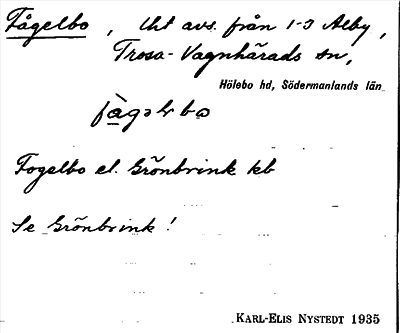 Fågelbo, lht avs. från 1-3 Alby,
Trosa-Vagnhärads sn,
Hölebo hd, Södermanlands län
fàgəlbo
Fogelbo el. Grönbrink kb
Se Grönbrink!
KARL-ELIS NYSTEDT 1935